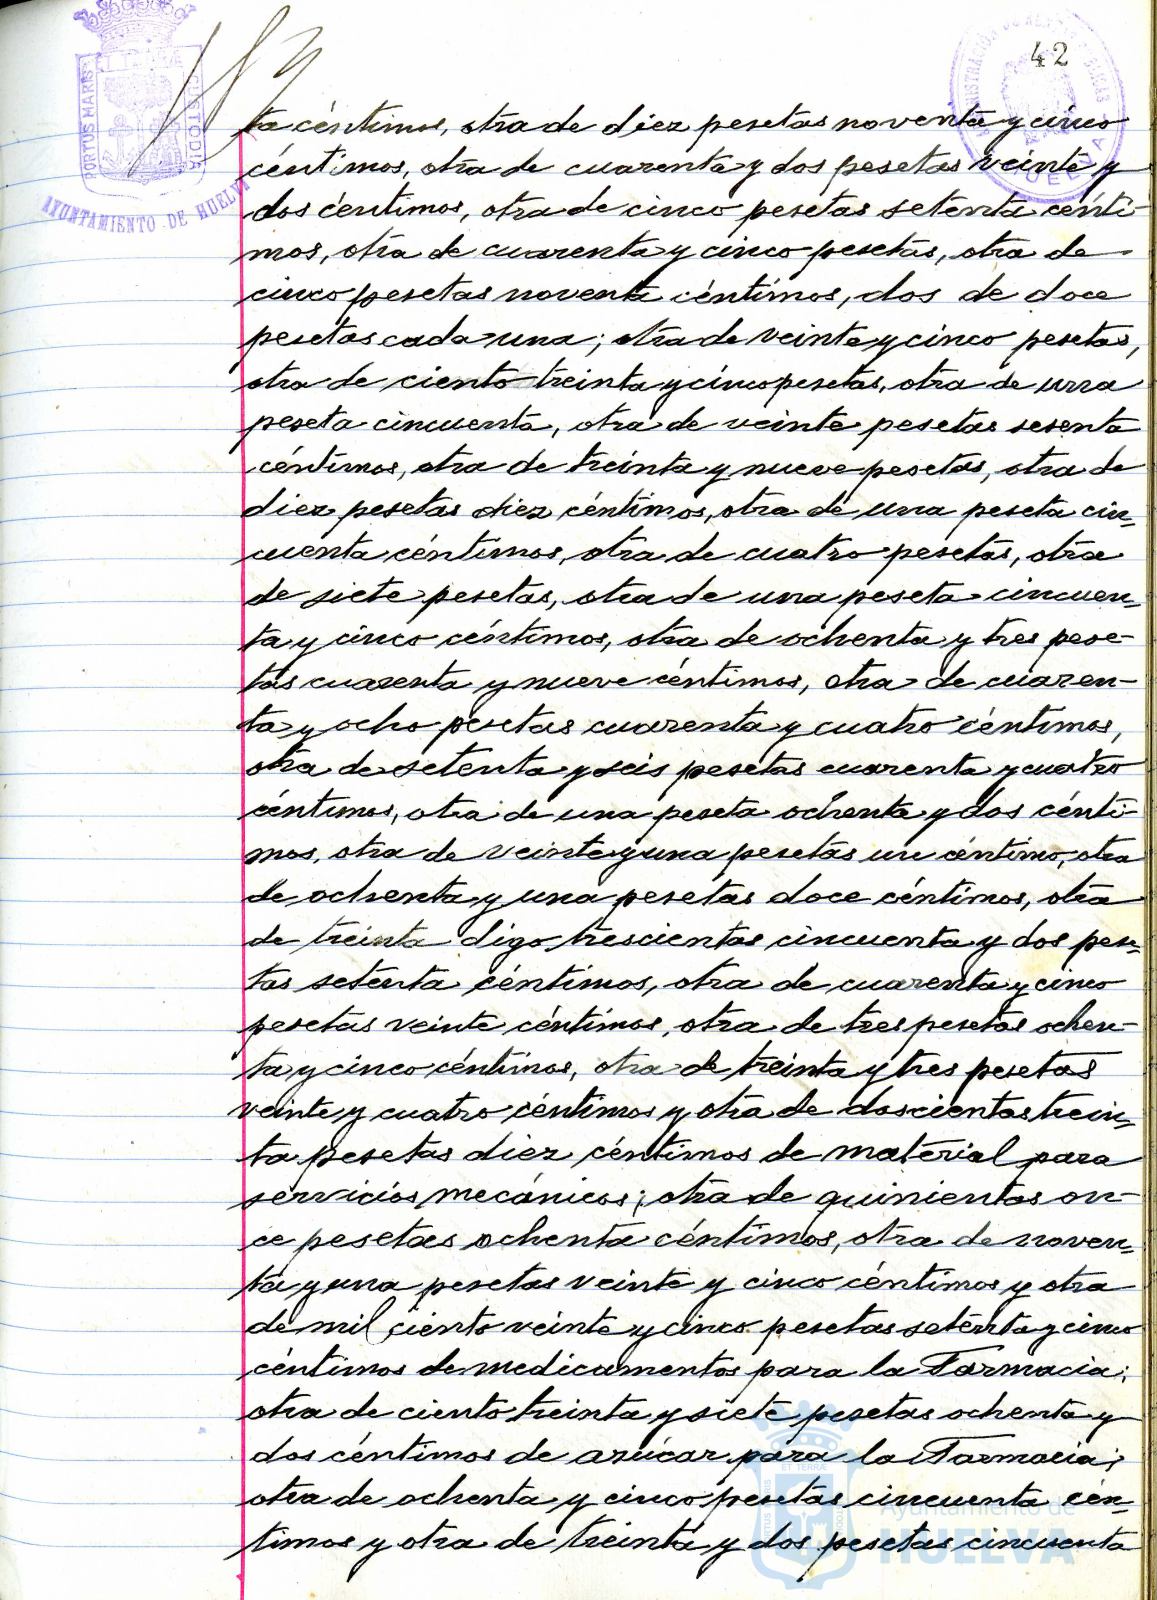 42
PORTUS MARIS
CUSTODIA
AYUNTAMIENTO DE HUELVA
HUELVA
ta céntimos, otra de diez pesetas noventa y cinco
céntimos, otra de cuarenta y dos pesetas veinte y
dos céntimos, otra de cinco pesetas setenta cénti-
mos, otra de cuarenta y cinco pesetas, otra de
cinco pesetas noventa céntimos, dos de doce
pesetas cada una; otra de veinte y cinco pesetas,
otra de ciento treinta y cinco pesetas, otra de una
peseta cincuenta, otra de veinte pesetas sesenta
céntimos, otra de treinta y nueve pesetas, otra de
diez pesetas diez céntimos, otra de una peseta cin-
cuenta céntimos, otra de cuatro pesetas, otra
de siete pesetas, otra de una peseta cincuen-
ta y cinco céntimos, otra de ochenta y tres pese-
tas cuarenta y nueve céntimos, otra de cuaren-
ta y ocho pesetas cuarenta y cuatro céntimos,
otra de setenta y seis pesetas cuarenta y cuatro
céntimos, otra de una peseta ochenta y dos cénti-
mos, otra de veinte y una pesetas un céntimo, otra
de ochenta y una pesetas doce céntimos, otra
de treinta digo trescientas cincuenta y dos pese-
tas setenta céntimos, otra de cuarenta y cinco
pesetas veinte céntimos, otra de tres pesetas ochen-
ta y cinco céntimos, otra de treinta y tres pesetas
veinte y cuatro céntimos y otra de doscientas trein-
ta pesetas diez céntimos de material para
servicios mecánicos; otra de quinientas on-
ce pesetas ochenta céntimos, otra de noven-
ta y una pesetas veinte y cinco céntimos y otra
de mil ciento veinte y cinco pesetas setenta y cinco
céntimos de medicamentos para la Farmacia;
otra de ciento treinta y siete pesetas ochenta y
dos céntimos de azúcar para la Farmacia;
otra de ochenta y cinco pesetas cincuenta cén-
timos y otra de treinta y dos pesetas cincuenta
Ayuntamiento de
HUELVA